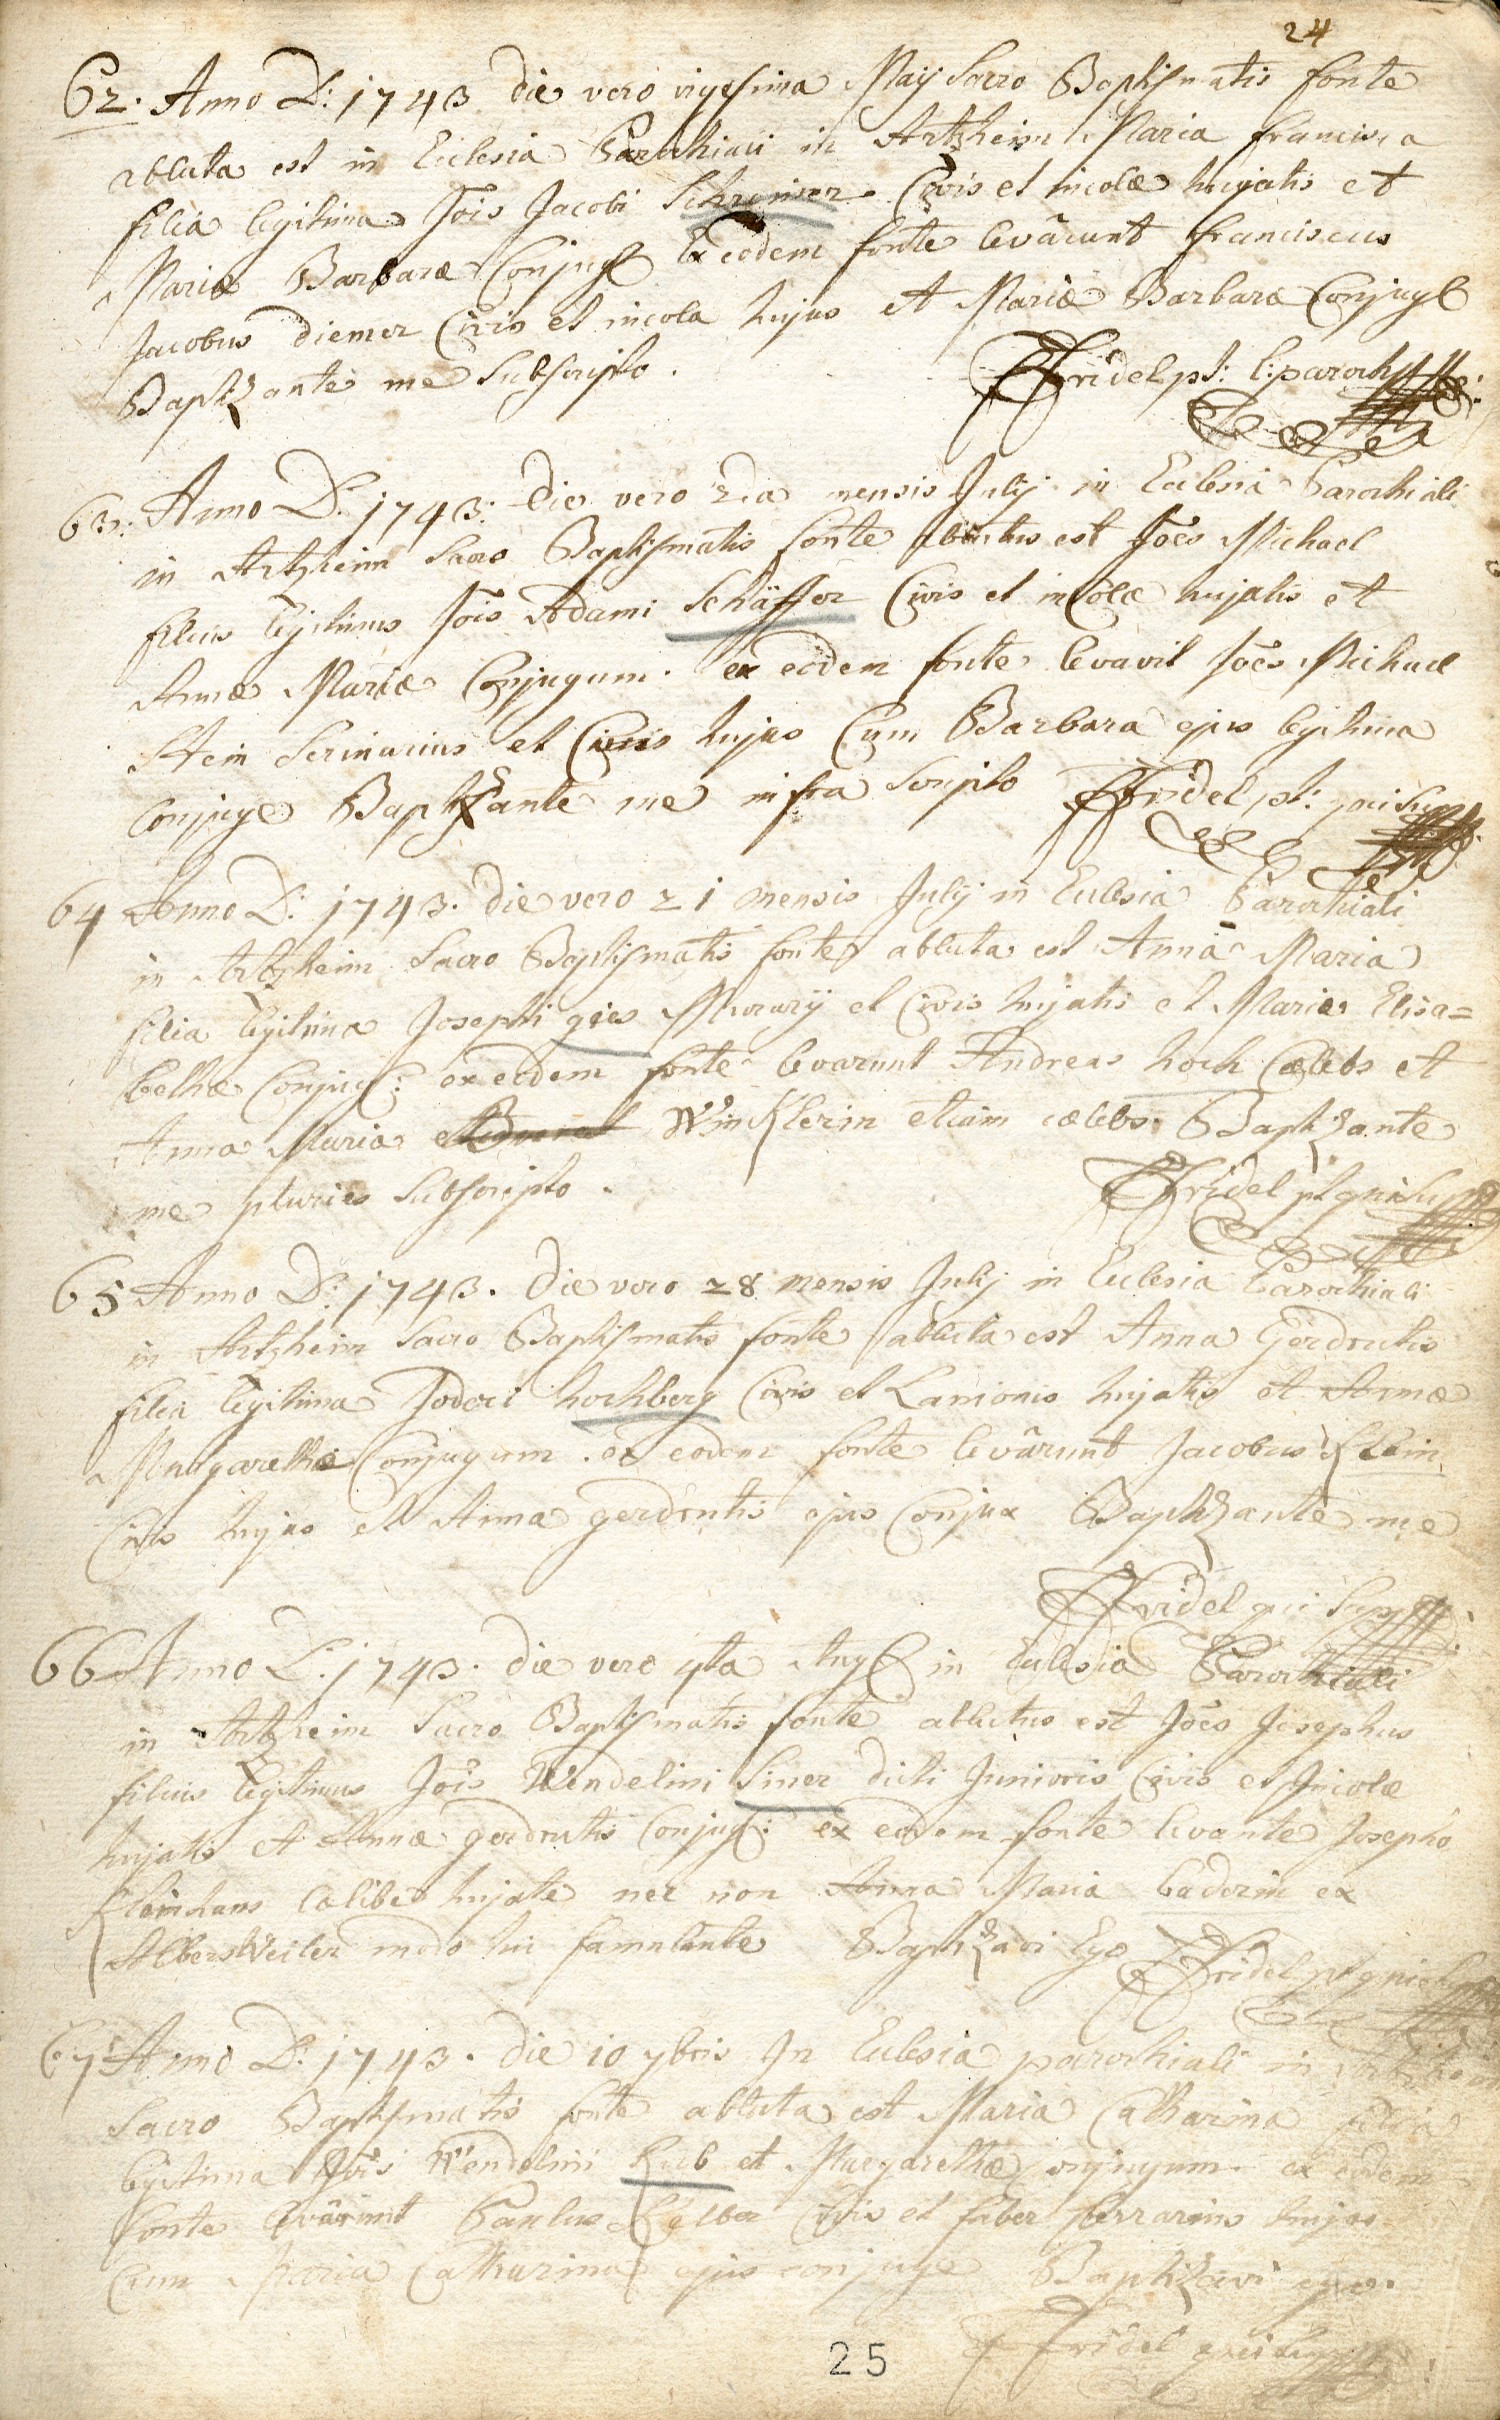 24
62. Anno D: 1743 die vero vigesima Maij Sacro Baptismatis fonte
abluta est in Eclesia Parochiali in Artzheim Maria Francisca
filia legitima Jois Jacobi Schreiner Civis et incolæ hujatis et
Mariæ Barbaræ Conjug: Ex eodem fonte levârunt Franciscus
Jacobus Diemer Civis et incola hujus et Mariæ Barbaræ Conjug:
Baptizante me Subscripto.
Fridel pt: l: paroch
63. Anno D: 1743: die vero 2da mensis Julij in Eclesia Parochiali
in Artzheim Sacro Baptismatis fonte ablutus est Joes Michael
filius legitimus Jois Adami Schäffer Civis et incolæ hujatis et
Annæ Mariæ Conjugum. ex eodem fonte levavit Joes Michael
Stein Scrinarius et Civis hujus Cum Barbara ejus legitima
Conjuge Baptizante me infra Scripto Fridel pt: qui Supra
64 Anno D: 1743. die vero 21 mensis Julij in Eclesia Parochiali
in Artzheim Sacro Baptismatis fonte abluta est Anna Maria
filia legitima Josephi gies Murarij et Civis hujatis et Mariæ Elisa=
bethæ Conjug: ex eodem fonte levarunt Andreas hoch Cælebs et
Anna Maria Wincklerin etiam cælebs. Baptizante
me pluries Subscripto.
Fridel pt qui Supra
65 Anno D: 1743. Die vero 28 mensis Julij in Eclesia Parochiali
in Artzheim Sacro Baptismatis fonte abluta est Anna Gerdrutis
filia legitima Jodoci hochberg Civis et Lanionis hujatis et Annæ
Margarethæ Conjugum. ex eodem fonte levârunt Jacobus Klein
Civis hujus et Anna gerdrutis ejus Conjux Baptizante me
Fridel qui Supra
66 Anno D: 1743. die vero 4ta Aug: in Eclesia Parochiali
in Artzheim Sacro Baptismatis fonte ablutus est Joes Josephus
filius legitimus Jois Wendelini Siner dicti Junioris Civis et Incolæ
hujatis et Annæ gerdrutis Conjug: ex eodem fonte levante Josepho
Kleinhans Cælibe hujate nec non Anna Maria baderin ex
Albersweiler modo hic famulante Baptizavi Ego Fridel pt qui Supra
67 Anno D: 1743. die 10 7bris In Eclesia parochiali in Artzheim
Sacro Baptismatis fonte abluta est Maria Catharina filia
legitima Jois Wendelini Kub et Margarethæ conjugum. ex eodem
fonte levârunt Paulus Civis et faber ferrarius hujus
Cum Maria Catharina ejus conjuge Baptizavi ego.
Fridel qui supra
25